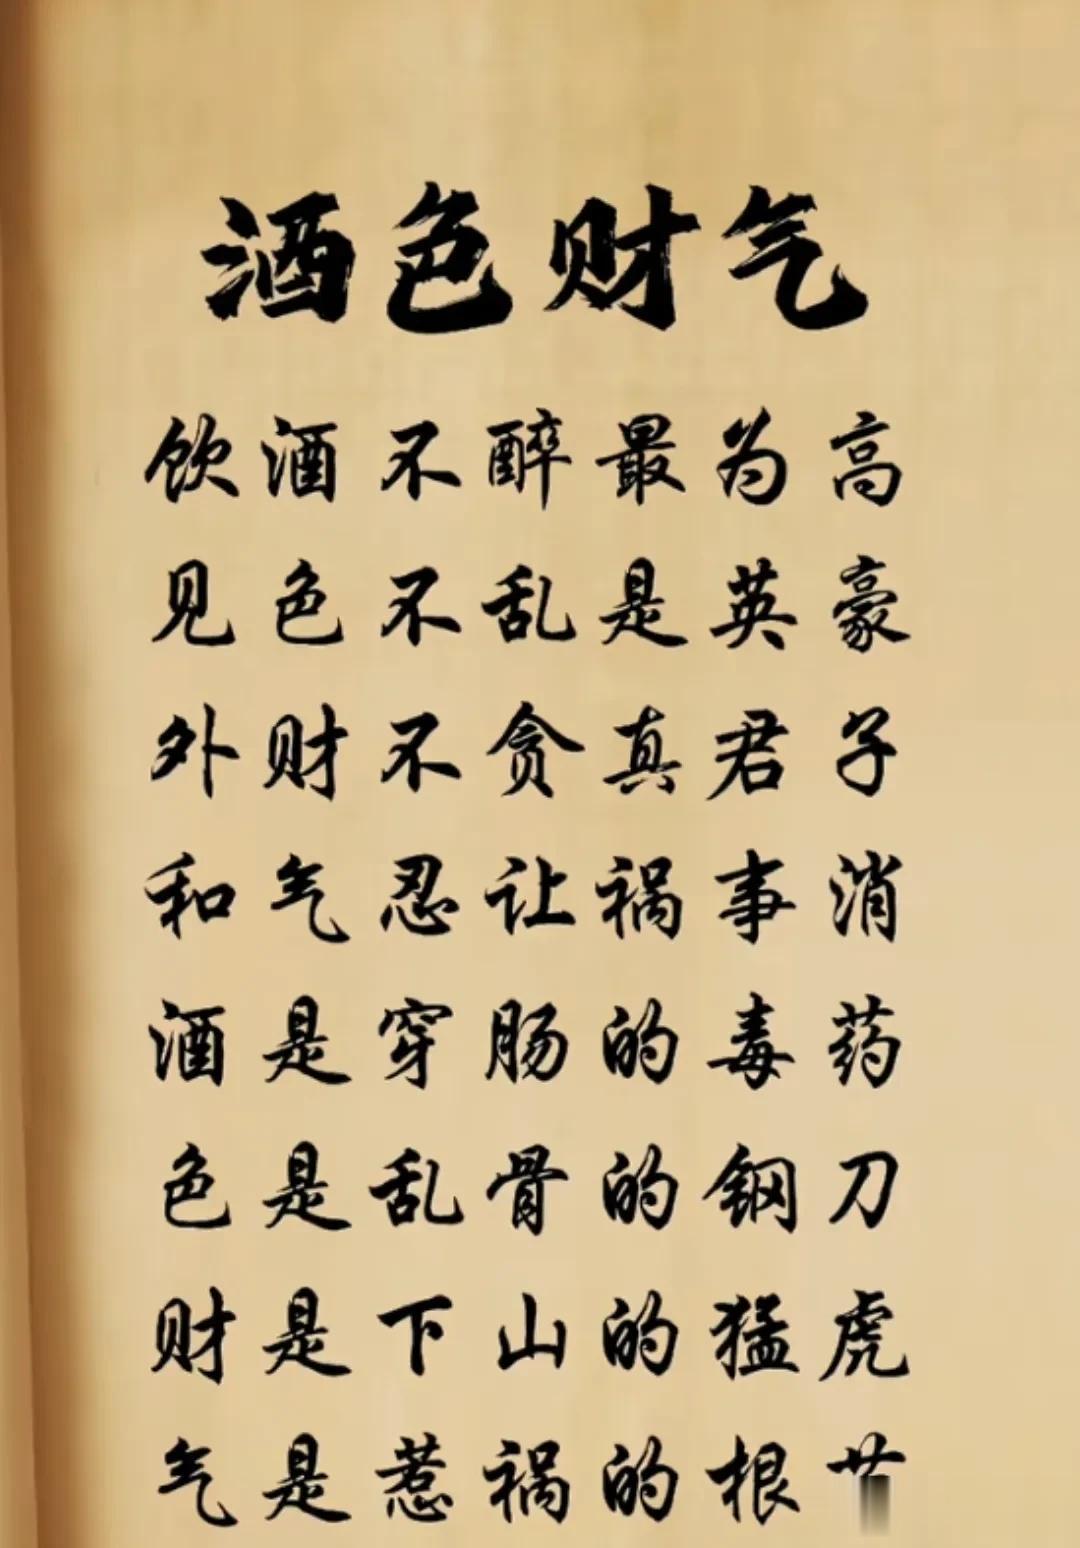 酒色财气
饮酒不醉最为高
见色不乱是英豪
外财不贪真君子
和气忍让祸事消
酒是穿肠的毒药
色是乱骨的钢刀
财是下山的猛虎
气是惹祸的根